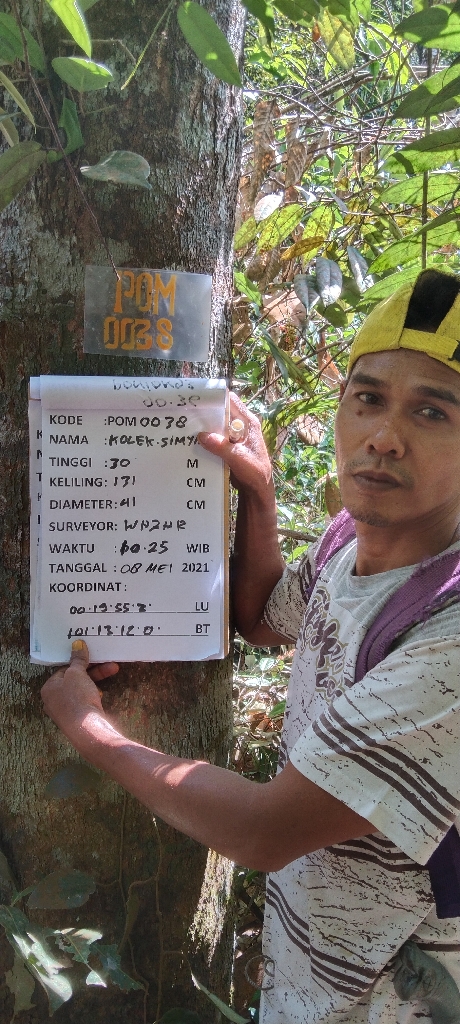 POM
0038
00.30
KODE :POM 0038
NAMA :KOLEK.SIMYA
TINGGI :30 M
KELILING: 131 CM
DIAMETER: 41 CM
SURVEYOR:
WAKTU : 10.25 WIB
TANGGAL : 08 MEI 2021
KOORDINAT:
00.19.55.2 LU
101.13.12.0. BT